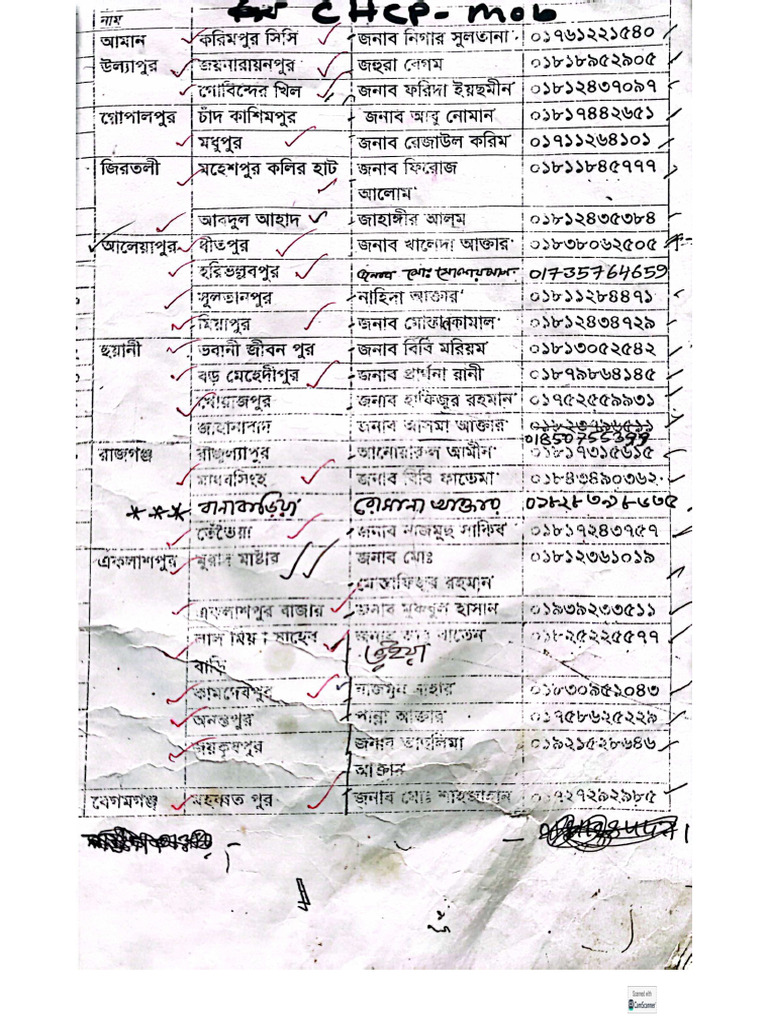 নাম CHCP - mob
আমান করিমপুর সিসি জনাব নিগার সুলতানা ০১৭৬১২২১৫৪০
উল্যাপুর জয়নারায়নপুর জহুরা বেগম ০১৮১৮৯৫২৯০৫
গোবিন্দের খিল জনাব ফরিদা ইয়ছমীন ০১৮১২৪৩৭০৯৭
গোপালপুর চাঁদ কাশিমপুর জনাব আবু নোমান ০১৮১৭৪৪২৬৫১
মধুপুর জনাব রেজাউল করিম ০১৭১১২৬৪১০১
জিরতলী মহেশপুর কলির হাট জনাব ফিরোজ ০১৮১১৮৪৫৭৭৭
আলোম
আবদুল আহাদ জাহাঙ্গীর আলম ০১৮১২৪৩৫৩৮৪
আলেয়াপুর ধীতপুর জনাব খালেদা আক্তার ০১৮৩৮০৬২৫০৫
হরিভল্লবপুর জনাব মোঃ 01735764659
সুলতানপুর নাহিদা আক্তার ০১৮১১২৮৪৪৭১
মিয়াপুর জনাব মোস্তফা কামাল ০১৮১২৪৩৪৭২৯
ছয়ানী ভবানী জীবন পুর জনাব বিবি মরিয়ম ০১৮১৩০৫২৫৪২
বড় মেহেদীপুর জনাব প্রার্থনা রানী ০১৮৭৯৮৬৪১৪৫
খোয়াজপুর জনাব হাফিজুর রহমান ০১৭৫২৫৫৯৯৩১
জাহানাবাদ জনাব আসমা আক্তার
01850755399
রাজগঞ্জ রাজুল্যাপুর আনোয়ারুল আমীন ০১৮১৭৩১৫৬১৫
মাধবসিংহ জনাব বিবি ফাতেমা ০১৮৪৩৪৯০৩৬২
*** বানাবাড়িয়া রোমানা আক্তার
তেঁতৈয়া জনাব নাজমুছ সাকিব ০১৮১৭২৪৩৭৫৭
একলাশপুর নুরুল মাষ্টার জনাব মোঃ ০১৮১২৩৬১০১৯
মোস্তাফিজুর রহমান
একলাশপুর বাজার জনাব মকবুল হাসান ০১৯৩৯২৩৩৫১১
লাল মিয়া সাহেব জনাব বাতেন ০১৮২৫২২৫৫৭৭
বাড়ি ভূঁইয়া
কামদেবপুর নাজমুন নাহার ০১৮৩০৯৫১০৪৩
অনন্তপুর পান্না আক্তার ০১৭৫৮৬২৫২২৯
জয়কৃষ্ণপুর জনাব তাহলিমা ০১৯২১৫২৮৬৪৬
আক্তার
বেগমগঞ্জ মহব্বত পুর জনাব মোঃ শাহজাহান ০১৭২৭২৯২৯৮৫
Scanned with
CamScanner